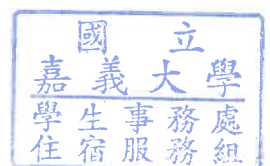 國立
嘉義大學
學生事務處
住宿服務組